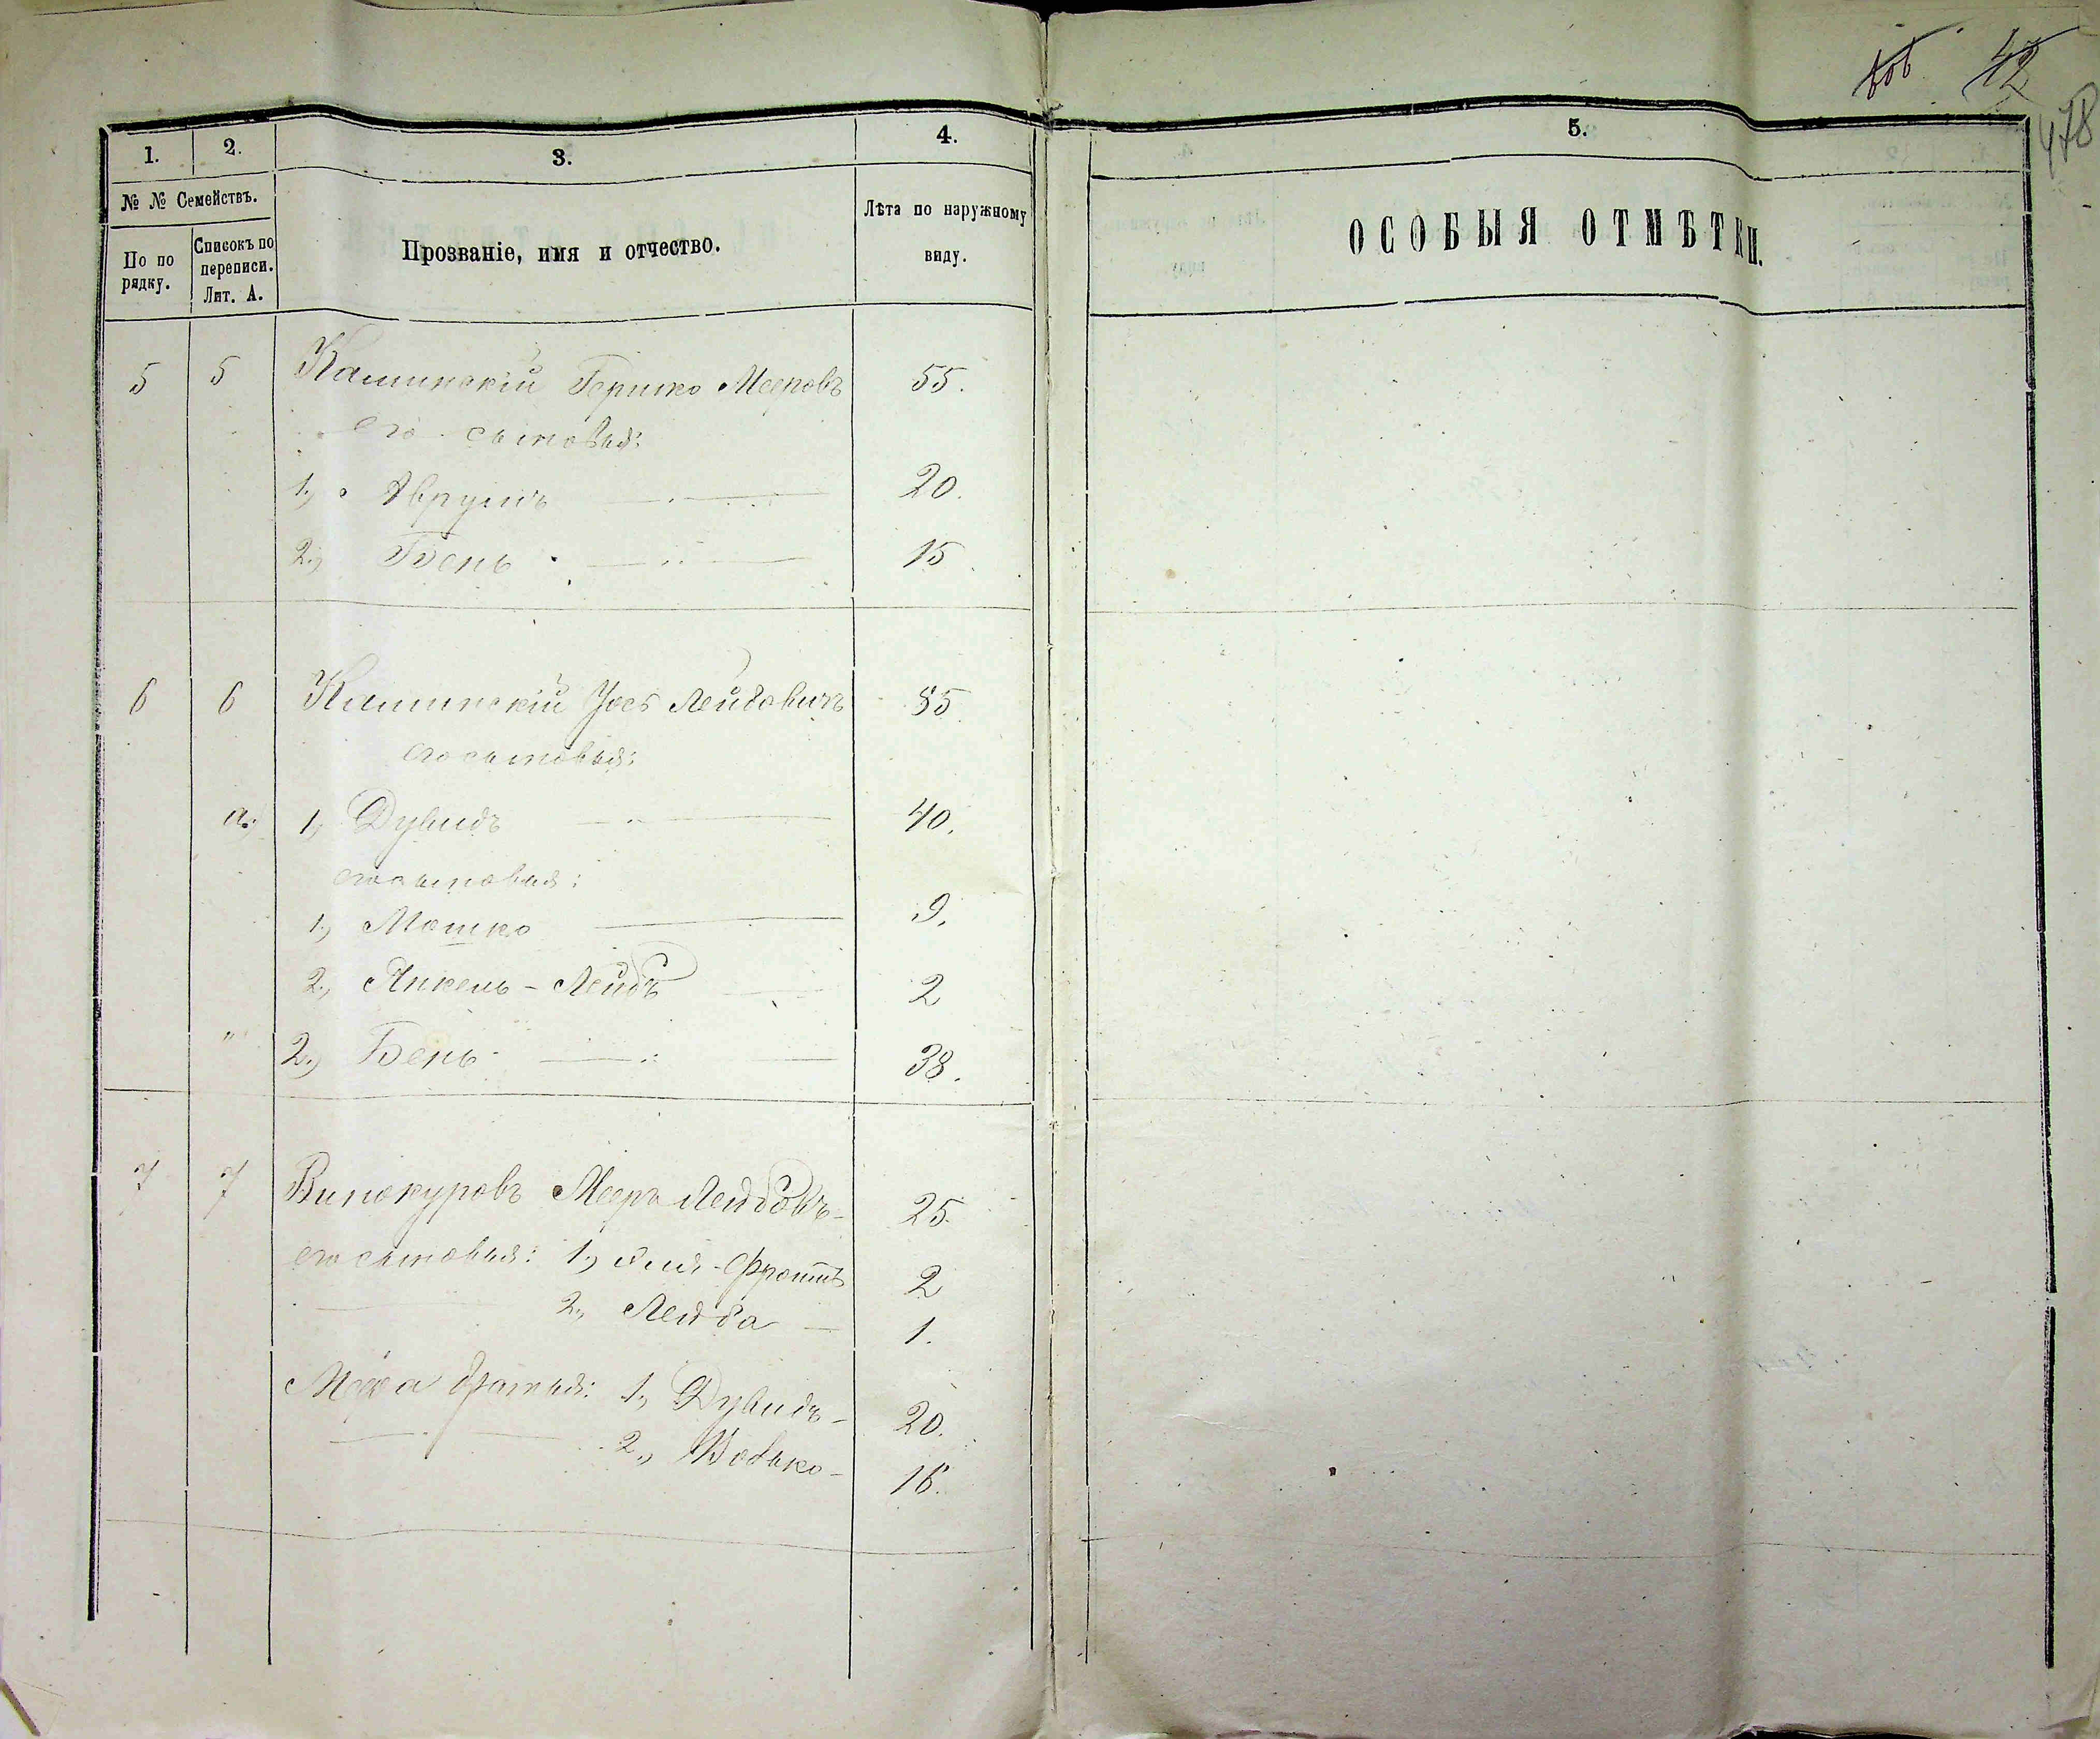 42
478
1.
2.
3.
4.
5.
№ № Семействъ.
По по
рядку.
Списокъ по
переписи.
Лит. А.
Прозваніе, имя и отчество.
Лѣта по наружному
виду.
ОСОБЫЯ ОТМѢТКИ.
5 5 Каминскій Гершко Мееровъ 55.
его сыновья:
1, Аврумъ 20.
2, Бень 15
6 6 Каминскій Лейбовичъ
его сыновья:
а, 1, Дувидъ 40.
его сыновья:
1, Мошко 9.
2, Янкель-Лейбъ 2
" 2, Бень 38.
7 7 Винокуровъ Мееръ Лейбовъ 25.
его сыновья: 1, 2
2, Лейба 1.
братья: 1, Дувидъ 20.
2, 16.